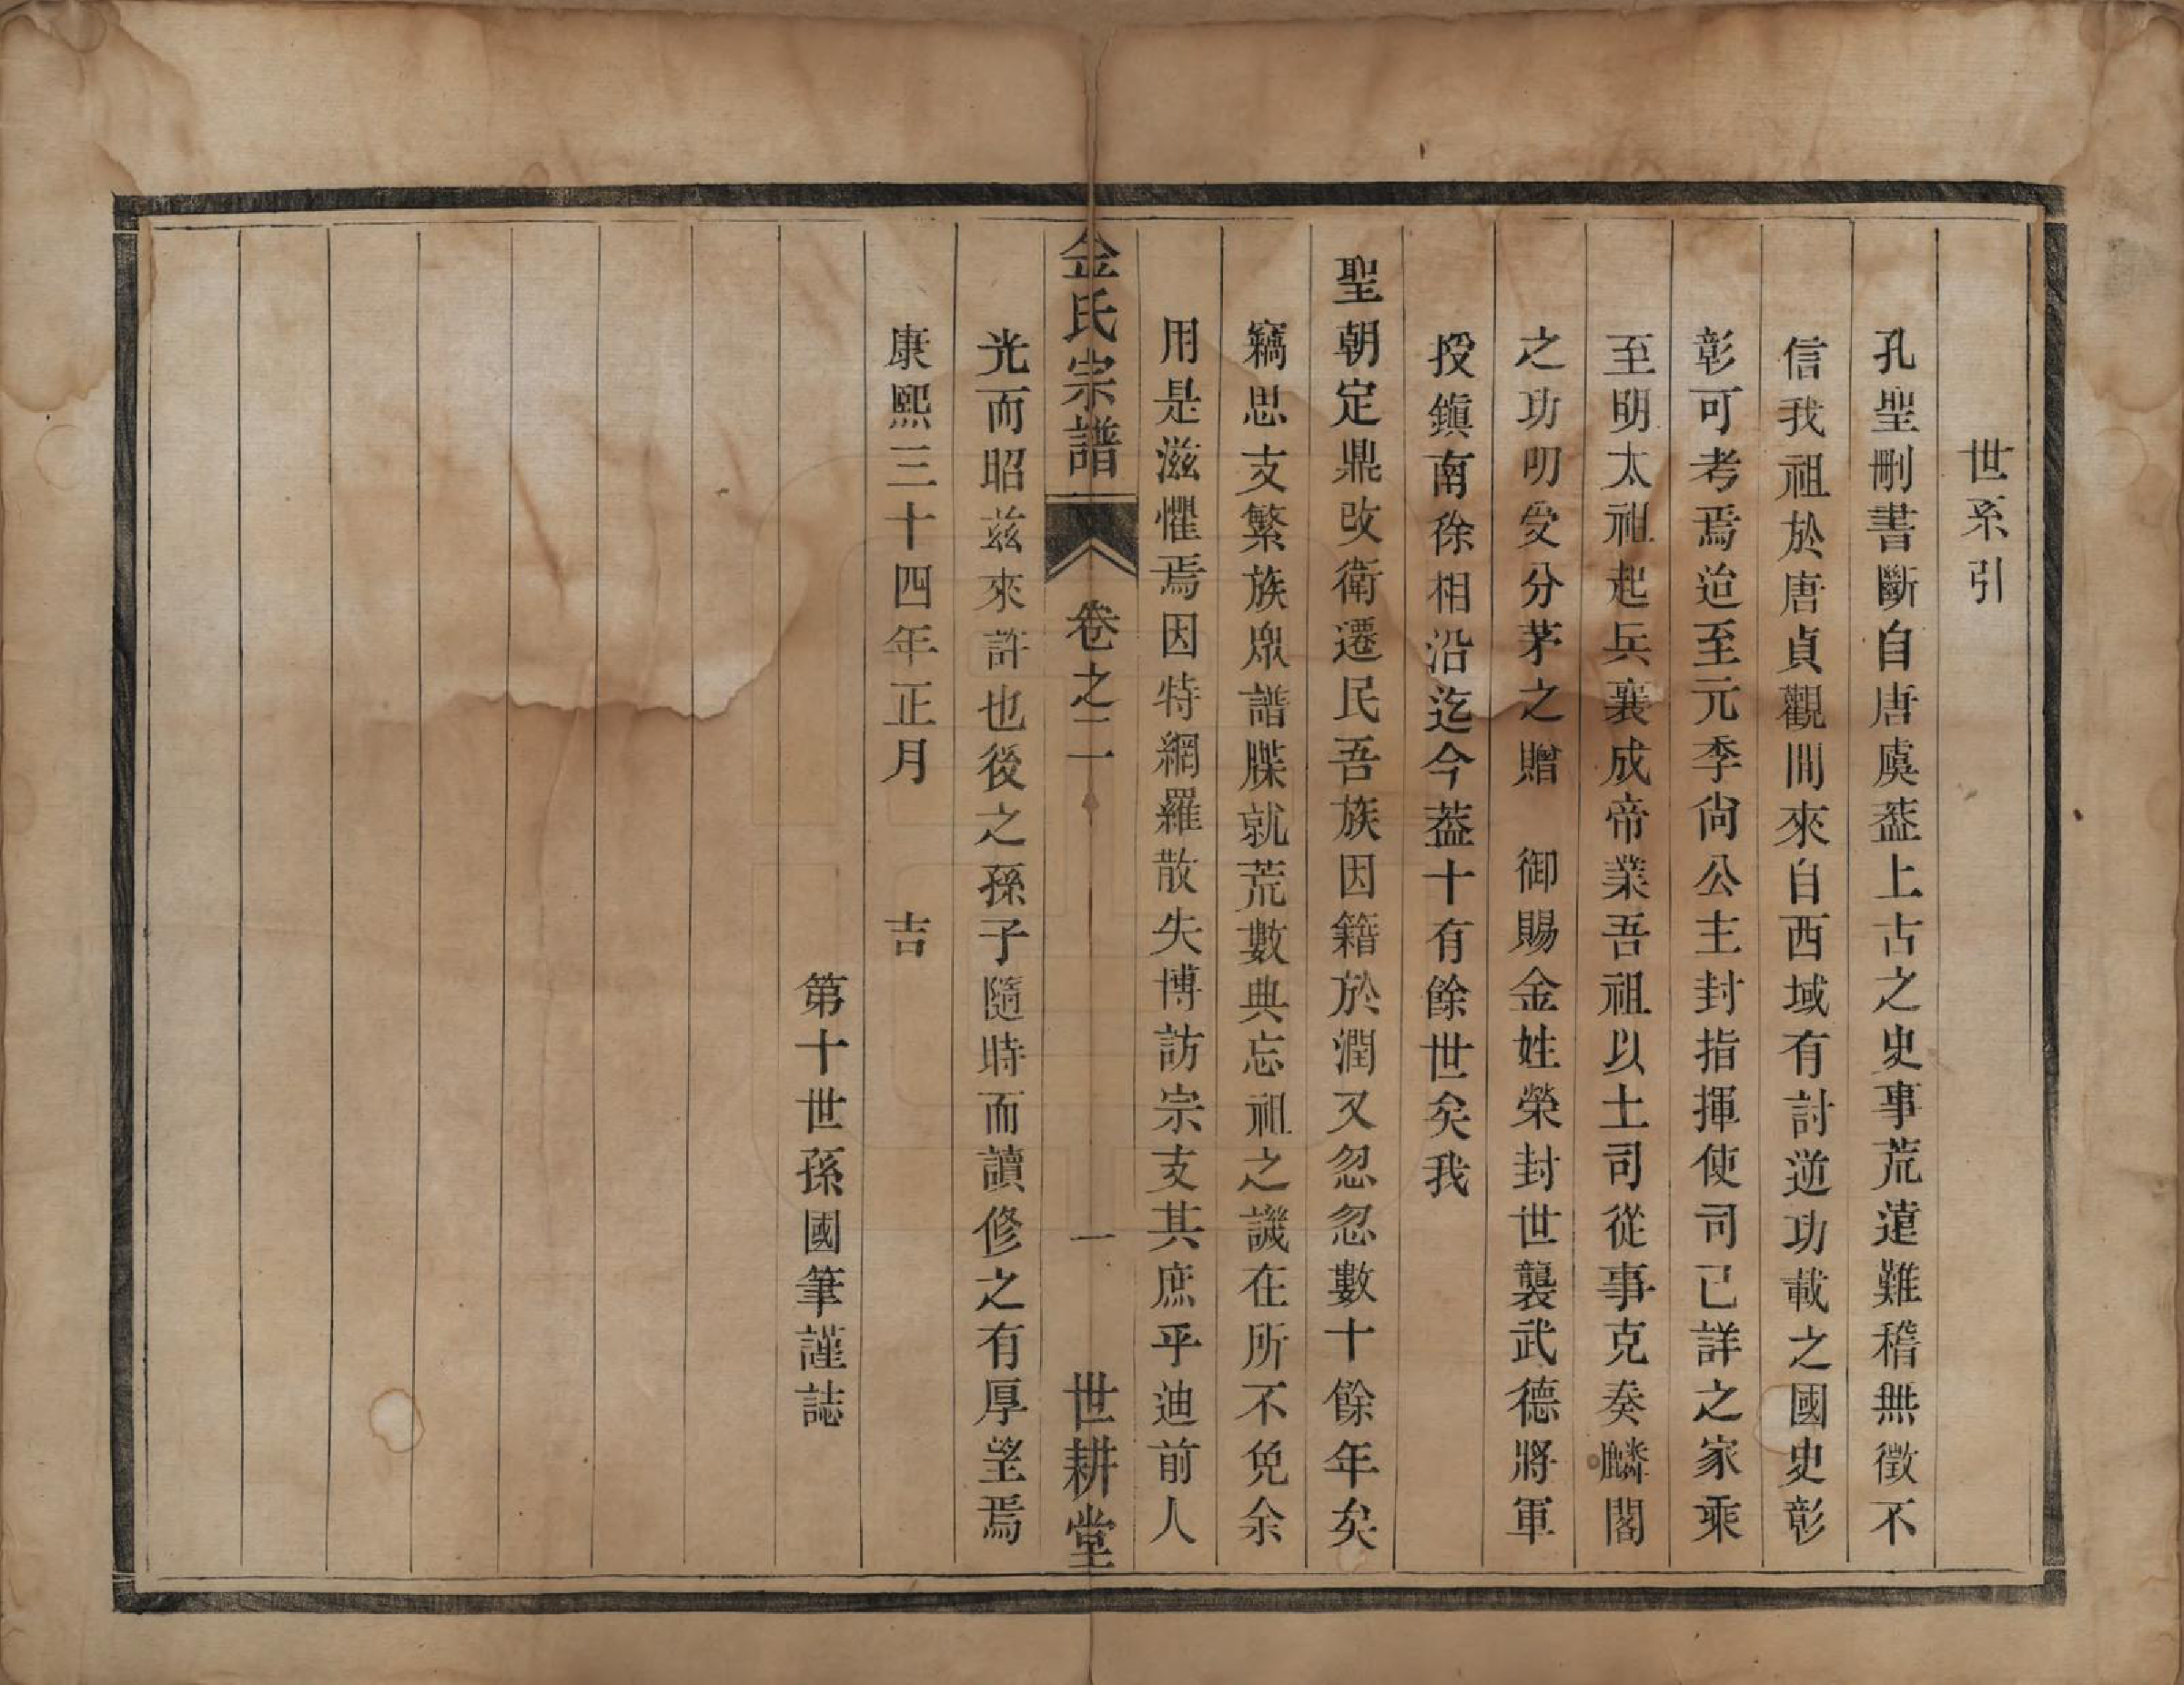 世系引
孔聖刪書斷自唐虞葢上古之史事荒遠難稽無徵不
信我祖於唐貞觀間來自西域有討逆功載之國史彰
彰可考焉迨至元季尙公主封指揮使司已詳之家乘
至明太祖起兵襄成帝業吾祖以土司從事克奏麟閣
之功叨受分茅之贈　御賜金姓榮封世襲武德將軍
授鎭南徐相沿迄今葢十有餘世矣我
聖朝定鼎改衛遷民吾族因籍於潤又忽忽數十餘年矣
竊思支繁族衆譜牒就荒數典忘祖之譏在所不免余
用是滋懼焉因特網羅散失博訪宗支其庶乎迪前人
金氏宗譜　卷之二　一　世耕堂
光而昭兹來許也後之孫子隨時而讀修之有厚望焉
康熙三十四年正月　　吉
第十世孫國筆謹誌